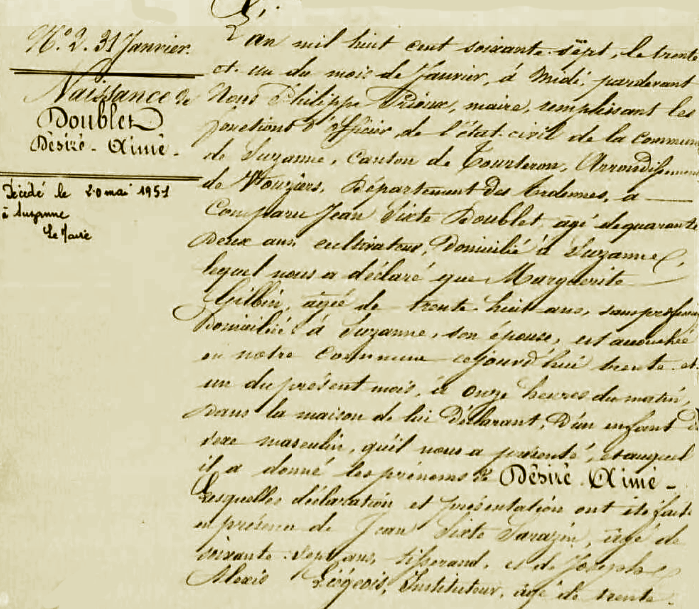 N.º 2. 31 Janvier.
Naissance de
Doublet
Désiré-Aimé.
Décédé le 20 mai 1951
à Suzanne
Le Maire
L'an mil huit cent soixante-sept, le trente
et un du mois de Janvier, à Midi, pardevant
Nous Philippe maire, remplissant les
fonctions d'officier de l'état civil de la commune
de Suzanne, Canton de Tourteron, Arrondissement
de Vouziers, Département des Ardennes, a
Comparu Jean Sixte Doublet, agé de quarante
deux ans cultivateur, Domicilié à Suzanne,
lequel nous a déclaré que Marguerite
Gilbin, agée de trente-huit ans, sans profession
Domiciliée à Suzanne, son épouse, est accouchée
en notre commune cejourd'hui trente et
un du présent mois, à onze heures du matin,
Dans la maison de lui Déclarant, D'un enfant du
sexe masculin, qu'il nous a présenté, et auquel
il a donné les prénoms de Désiré-Aimé-
Lesquelles déclaration et présentation ont été faites
en présence de Jean Sixte Sarazin, agé de
soixante-sept ans, tisserand, et de Joseph
Alexis Liégeois, Instituteur, agé de trente